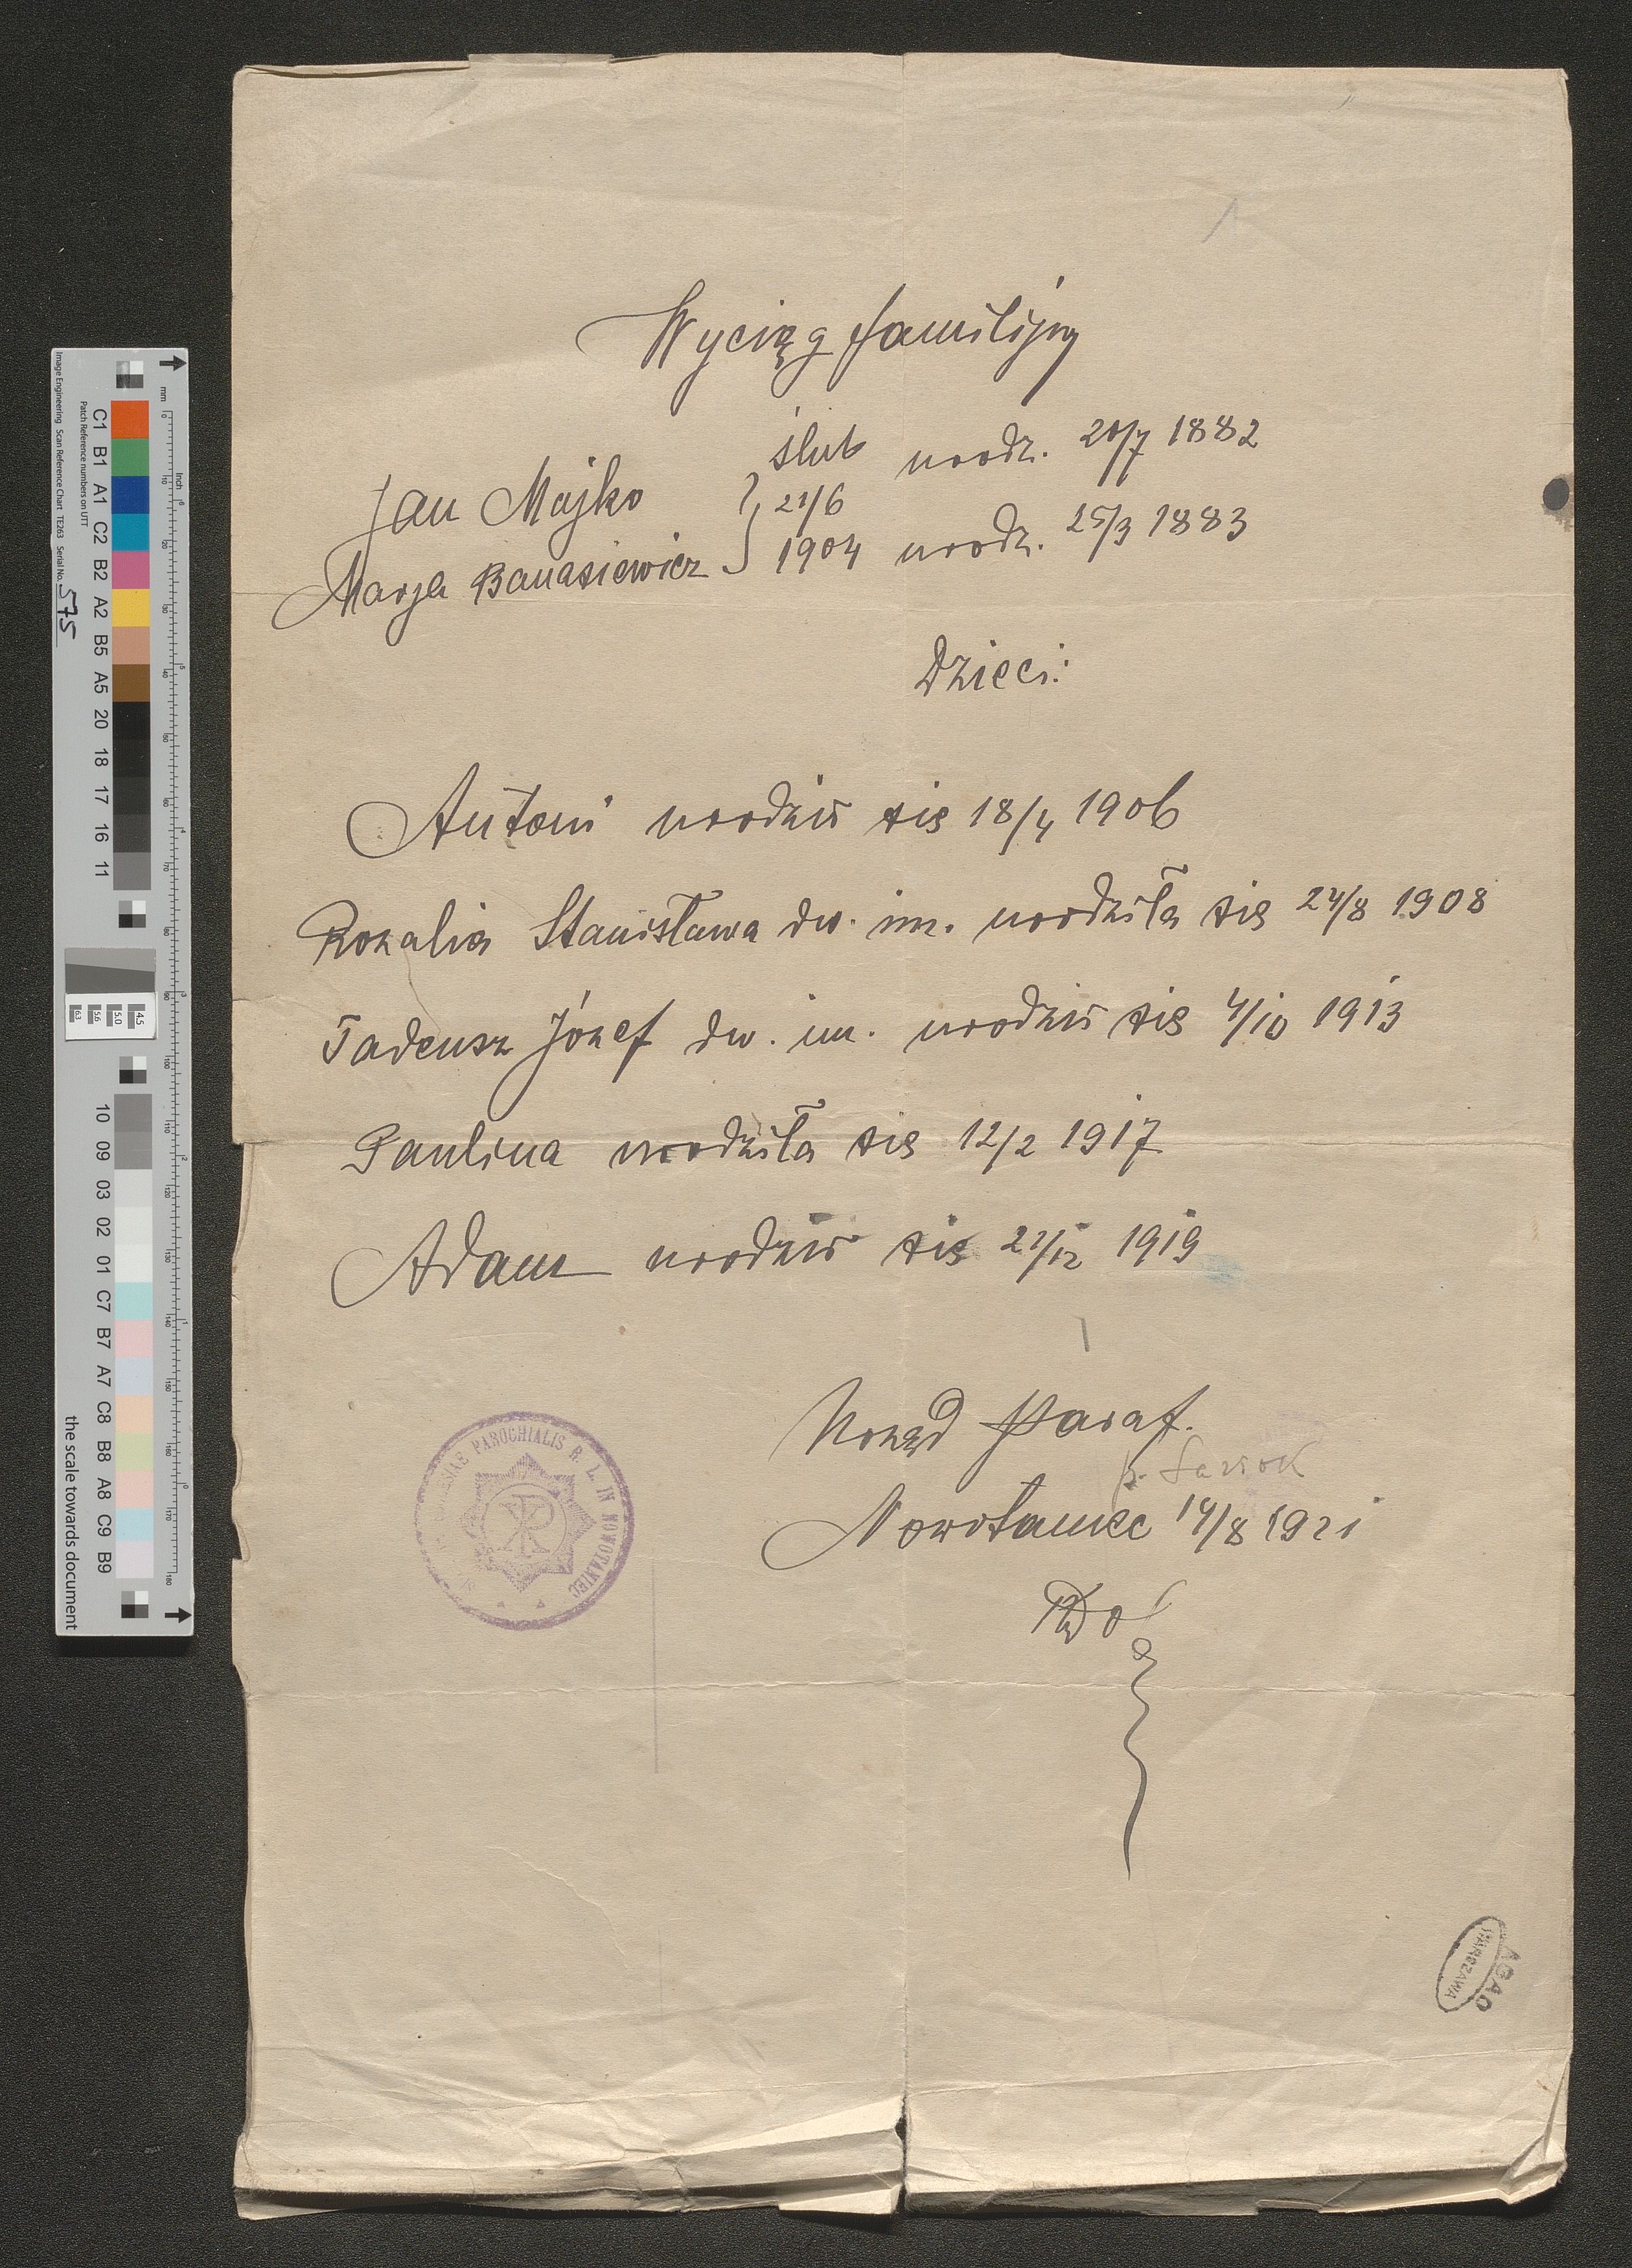 Wyciąg familijny
ślub urodz. 20/7 1882
Jan Majko } 21/6
Marja Banasiewicz 1904 urodz. 25/3 1883
Dzieci:
Antoni urodził się 18/4 1906
Rozalia Stanisława dw. im. urodziła się 24/8 1908
Tadeusz Józef dw. im. urodził się 4/10 1913
Paulina urodziła się 12/2 1917
Adam urodził się 21/12 1919
Urząd Paraf.
p. Sanok
Nowotaniec 14/8 1921
PAROCHIALIS R. L. IN NOWOTANIEC
AGAD
WARSZAWA
Image Engineering Scan Reference Chart TE263 Serial No. 575
Patch Reference numbers on UTT
C1 B1 A1 C2 B2 A2 B5 A5 20 18 17 16 11
10 09 03 02 01 C7 B7 A7 C8 B8 A8 C9 B9
the scale towards document